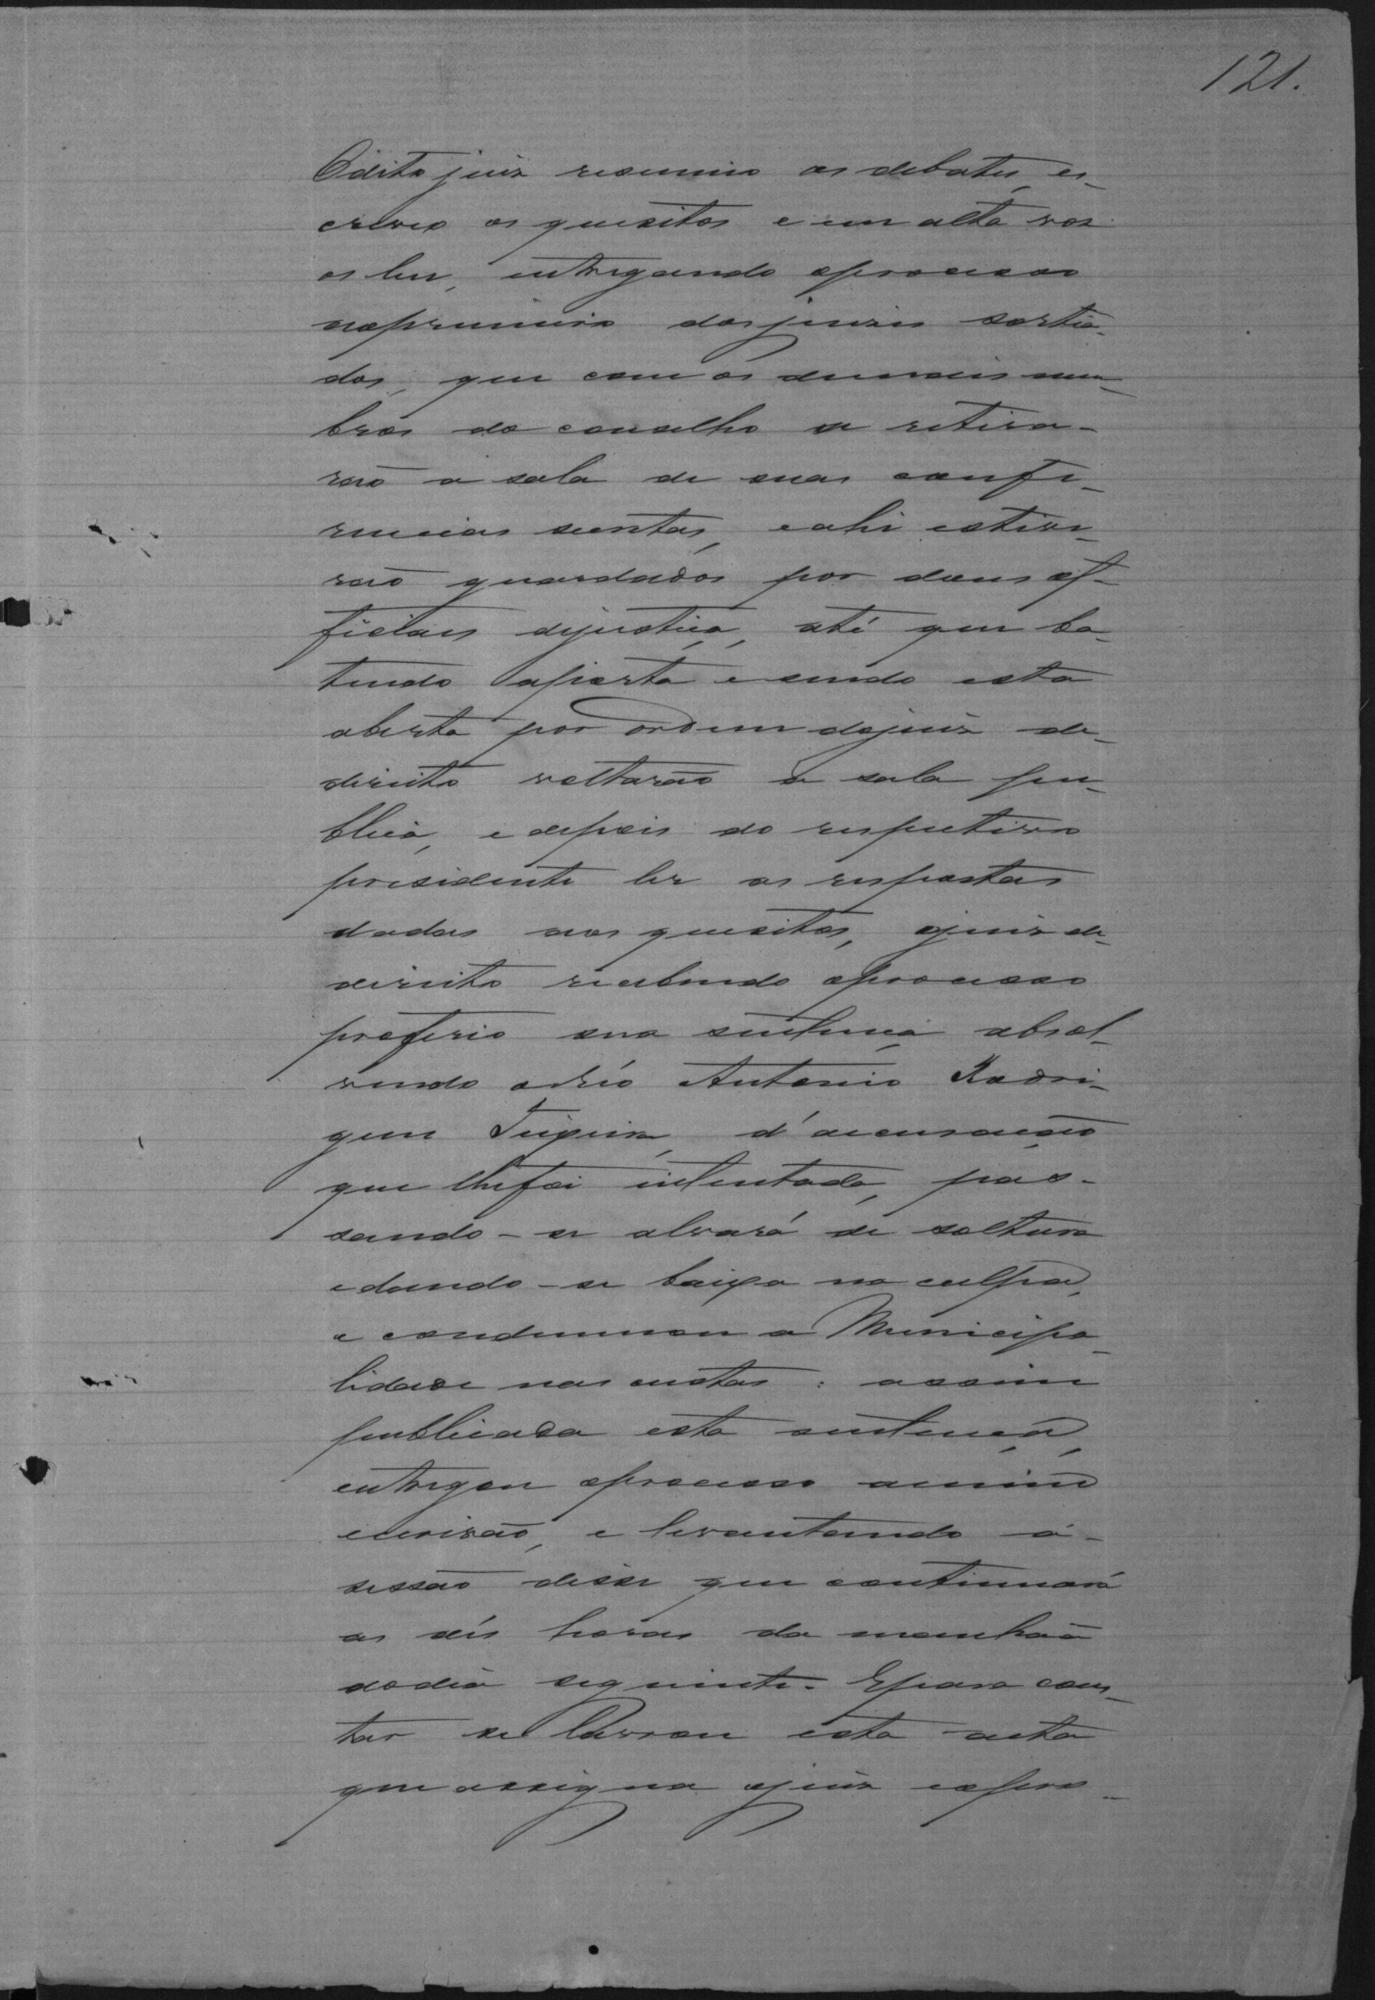 121.
O dito juiz resumio os debates, es-
creveo os quesitos e em alta voz
os leu, entregando o processo
ao primeiro dos juizes sortia-
dos, que com os demais mem-
bros do conselho se retira-
rão a sala de suas confe-
rencias secretas, e ahi estive-
rão guardados por dous of-
ficiaes de justiça, até que ba-
tendo a porta e sendo esta
aberta por ordem do juiz de
direito voltarão a sala pu-
blica, e depois do respectivo
presidente ler as respostas
dadas aos quesitos, o juiz de
direito recebendo o processo
proferio sua sentença absol-
vendo o réo Antonio Rodri-
gues Teixeira, d'accusação
que lhe foi intentada, pas-
sando-se alvará de soltura
e dando-se baixa na culpa,
e condemnou a Municipa-
lidade nas custas: assim
publicada esta sentença,
entregou o processo a mim
escrivão, e levantando a
sessão disse que continuará
as dés horas da manhãa
do dia seguinte. E para cons-
tar se lavrou esta acta
que assigna o juiz e o pro-